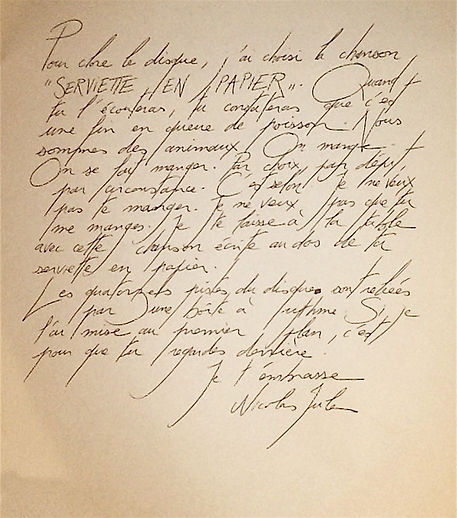 Pour clore le disque, j'ai choisi la chanson
"SERVIETTE EN PAPIER". Quand
tu l'écouteras, tu constateras que c'est
une fin en queue de poisson. Nous
sommes des animaux. On mange.
On se fait manger. Par choix, par dépit
par circonstance. C'est selon. Je ne veux
pas te manger. Je ne veux pas que tu
me manges. Je te laisse à la table
avec cette chanson écrite au dos de ta
serviette en papier.
Les quatorze pistes du disque sont reliées
par une boîte à rythme. Si je
l'ai mise au premier plan, c'est
pour que tu regardes derrière.
Je t'embrasse
Nicolas Jules